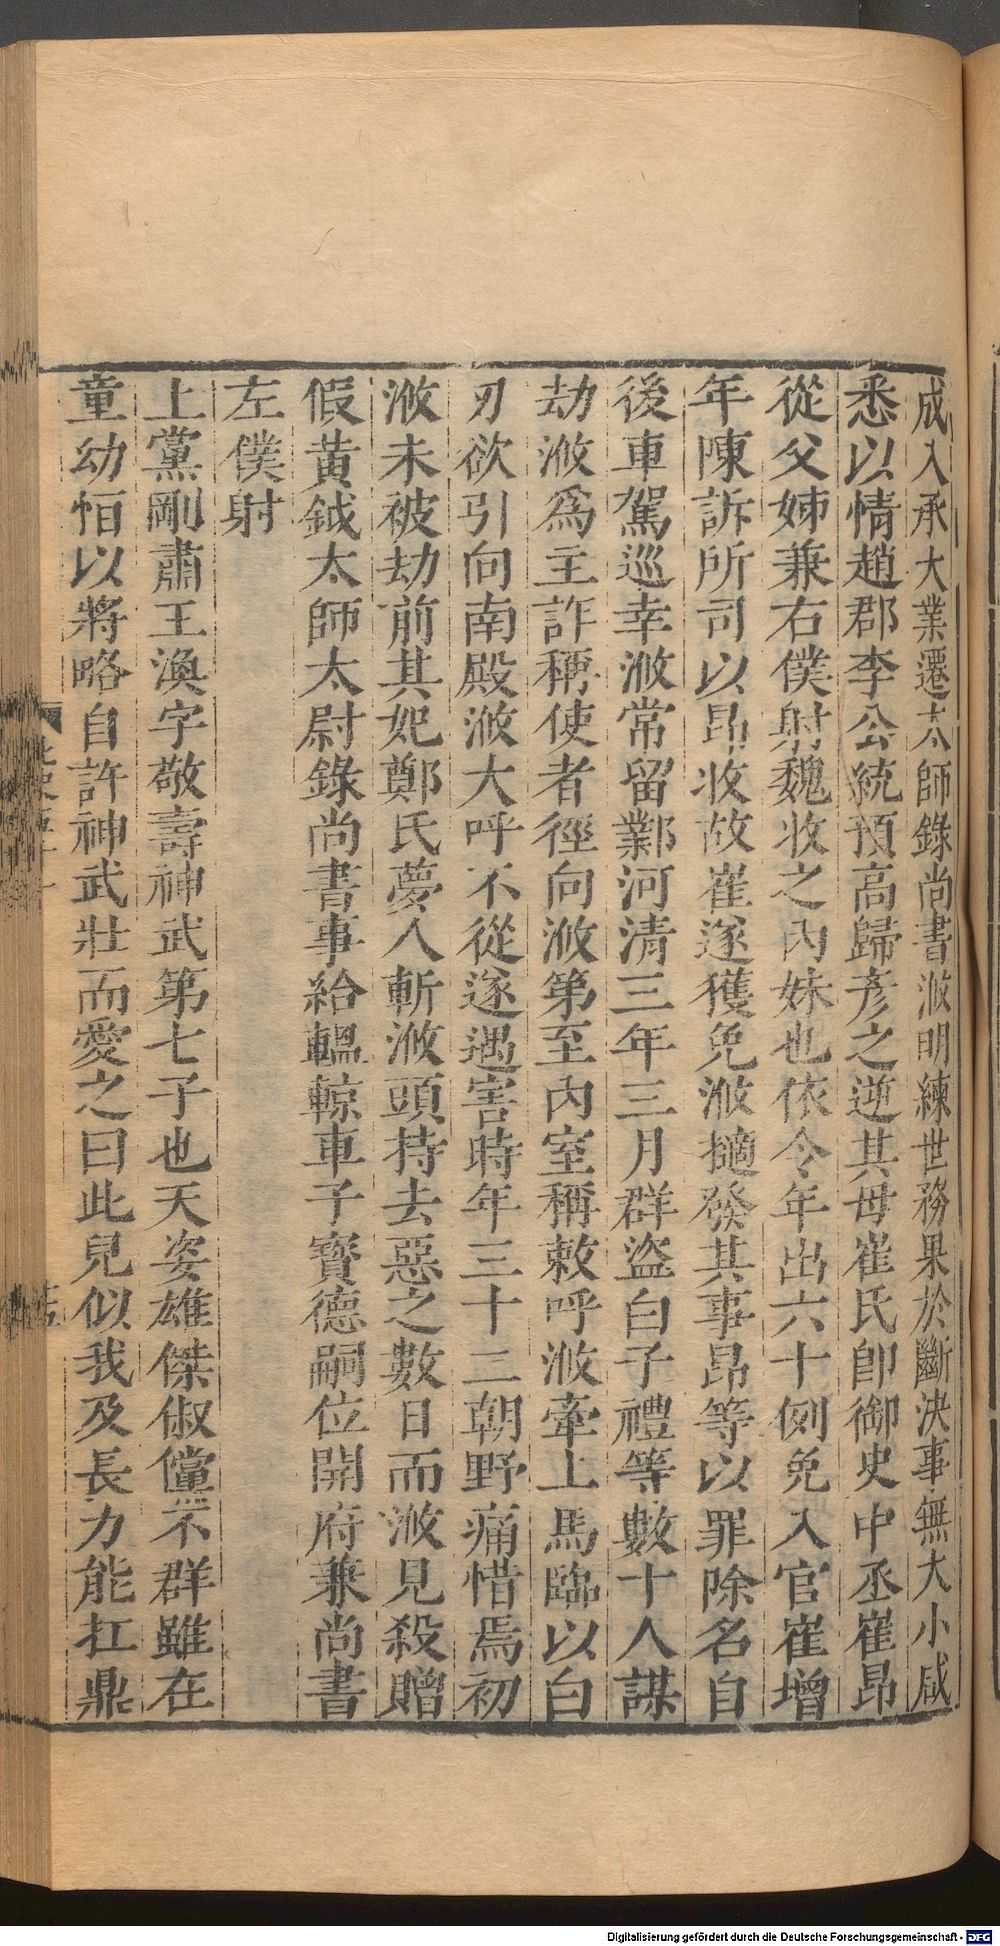 成入承大業遷太師錄尚書浟明練世務果於斷決事無大小咸
悉以情趙郡李公統預高歸彦之逆其母崔氏卽御史中丞崔昂
從父姊兼右僕射魏收之內妹也依令年出六十例免入官崔增
年陳訴所司以昂收故崔遂獲免浟擿發其事昂等以罪除名自
後車駕巡幸浟常留鄴河清三年三月群盜白子禮等數十人謀
劫浟爲主詐稱使者徑向浟第至內室稱敕呼浟牽上馬臨以白
刃欲引向南殿浟大呼不從遂遇害時年三十二朝野痛惜焉初
浟未被劫前其妃鄭氏夢人斬浟頭持去惡之數日而浟見殺贈
假黃鉞太師太尉錄尚書事給轀輬車子寶德嗣位開府兼尚書
左僕射
上黨剛肅王渙字敬壽神武第七子也天姿雄傑俶儻不群雖在
童幼恒以將略自許神武壯而愛之曰此兒似我及長力能扛鼎
Digitalisierung gefördert durch die Deutsche Forschungsgemeinschaft - DFG